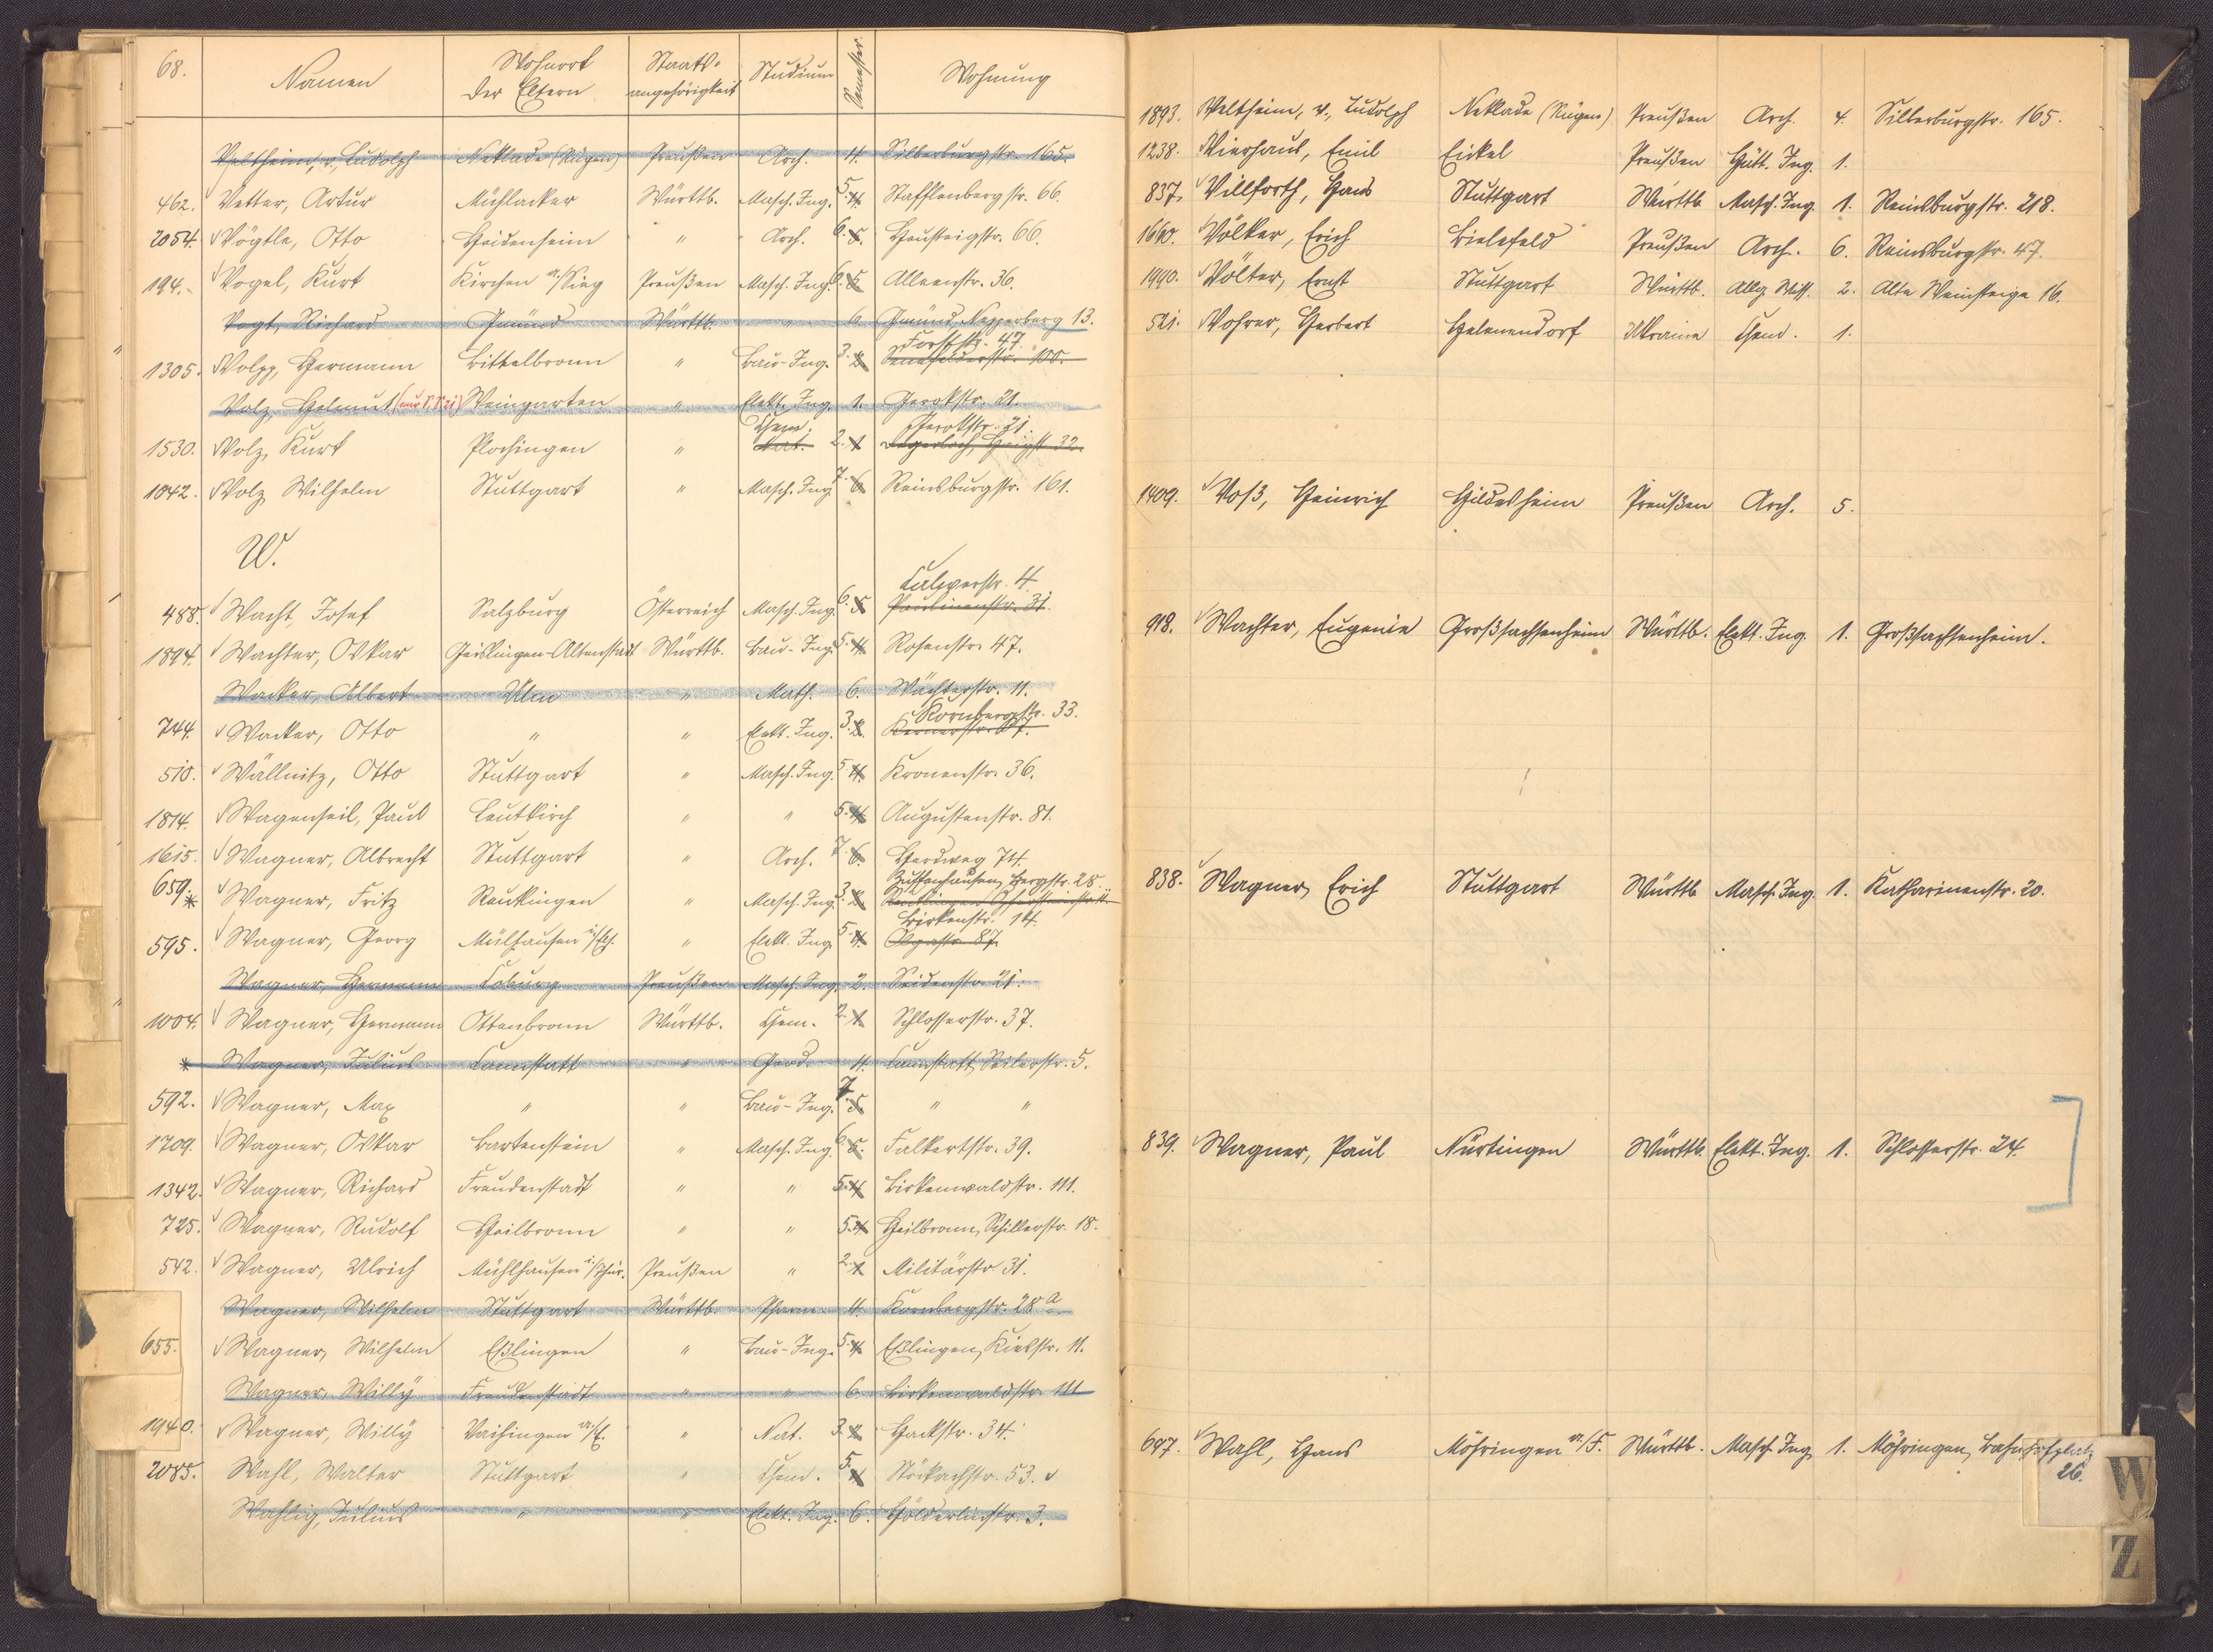 68.
Namen
Wohnort der Eltern
Staats-angehörigkeit
Studium
Semester.
Wohnung
Veltheim, v., Ludolph Neklade (Rügen) Preußen Arch. 4. Silberburgstr. 165.
462. Vetter, Artur Mühlacker Württb. Masch. Ing. 5. 4. Stafflenbergstr. 66.
2054. Vögtle, Otto Heidenheim " Arch. 6. 5. Hausteigstr. 66.
194. Vogel, Kurt Kirchen a/Sieg Preußen Masch. Ing. 6. 5. Alleenstr. 36.
Vogt, Richard Gmünd Württb. " 6. Gmünd, Nepperberg 13.
Forststr. 47.
1305. Volpp, Hermann Bittelbronn " Bau-Ing. 3. 2. Senefelderstr. 100.
Volz, Helmut Weingarten " Elekt. Ing. 1. Gerokstr. 21.
Chem. Gerokstr. 21.
1530. Volz, Kurt Plochingen " Nat. 2. 1. Degerloch, 32.
1042. Volz, Wilhelm Stuttgart " Masch. Ing. 7. 6. Reinsburgstr. 161.
W.
Calwerstr. 4.
488. Wacht, Josef Salzburg Österreich Masch. Ing. 6. 5. Paulinenstr. 31.
1894. Wachter, Oskar Geislingen-Altenstadt Württb. Bau-Ing. 5. 4. Rosenstr. 47.
Wacker, Albert Ulm " Math. 6. Wächterstr. 11.
Kornbergstr. 33.
744. Wacker, Otto " " Elekt. Ing. 3. 2. Kernerstr.
510. Wällnitz, Otto Stuttgart " Masch. Ing. 5. 4. Kronenstr. 36.
1814. Wagenseil, Paul Leutkirch " " 5. 4. Augustenstr. 81.
1615. Wagner, Albrecht Stuttgart " Arch. 7. 6. Herdweg 74.
Zuffenhausen, Bergstr. 28.
659. * Wagner, Fritz Renkingen " Masch. Ing. 3. 2.
Birkenstr. 14.
595. Wagner, Georg Mülhausen i/Els. " Elekt. Ing. 5. 4. Olgastr. 87.
Wagner, Hermann Coburg Preußen Masch. Ing. 2. Seidenstr. 21.
1004. Wagner, Hermann Ottenbronn Württb. Chem. 2. 1. Schlosserstr. 37.
* Wagner, Julius Cannstatt " Geod. 4. Cannstatt, Seilerstr. 5.
592. Wagner, Max " " Bau-Ing. 7. 5. " "
1709. Wagner, Oskar Bartenstein " Masch. Ing. 6. 5. Falkertstr. 39.
1342. Wagner, Richard Freudenstadt " " 5. 4. Birkenwaldstr. 111.
725. Wagner, Rudolf Heilbronn " " 5. 4. Heilbronn, Schillerstr. 18.
542. Wagner, Ulrich Mühlhausen i/Thür. Preußen " 2. 1. Militärstr. 31.
Wagner, Wilhelm Stuttgart Württb. Pharm. 4. Kornbergstr. 28 a.
655. Wagner, Wilhelm Eßlingen " Bau-Ing. 5. 4. Eßlingen, Kiesstr. 11.
Wagner, Willy Freudenstadt " " 6. Birkenwaldstr. 111
1940. Wagner, Willy Vaihingen a/E. " Nat. 3. 2. Hackstr. 34.
2085. Wahl, Walter Stuttgart " Chem. 5. 4. Stöckachstr. 53.
Wahlig, Julius " " Elekt. Ing. 6. Hölderlinstr. 3.
1893. Veltheim, v., Ludolph Neklade (Rügen) Preußen Arch. 4. Silberburgstr. 165.
1238. Vierhaus, Emil Eickel Preußen Hütt. Ing. 1.
837. Villforth, Hans Stuttgart Württb. Masch. Ing. 1. Reinsburgstr. 218.
Völker, Erich Bielefeld Preußen Arch. 6. Reinsburgstr. 47.
1990. Völter, Ernst Stuttgart Württb. Allg. Wiss. 2. Alte Weinsteige 16.
521. Vohrer, Herbert Helenendorf Ukraine Chem. 1.
1409. Voß, Heinrich Hildesheim Preußen Arch. 5.
918. Wachter, Eugenie Großsachsenheim Württb. Elekt. Ing. 1. Großsachsenheim.
838. Wagner, Erich Stuttgart Württb. Masch. Ing. 1. Katharinenstr. 20.
839. Wagner, Paul Nürtingen Württb. Elekt. Ing. 1. Schlosserstr. 24.
697. Wahl, Hans Möhringen a/F. Württb. Masch. Ing. 1. Möhringen, Bahnhofplatz 26.
W
Z